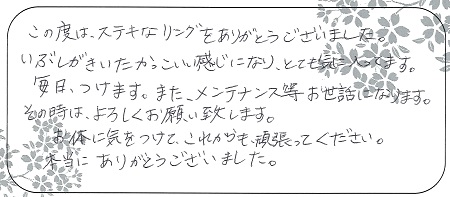 この度は、ステキなリングをありがとうございました。
いぶしがきいたかっこいい感じになり、とても気に入ってます。
毎日、つけます。また、メンテナンス等お世話になります。
その時は、よろしくお願い致します。
お体に気をつけて、これからも、頑張ってください。
本当に ありがとうございました。